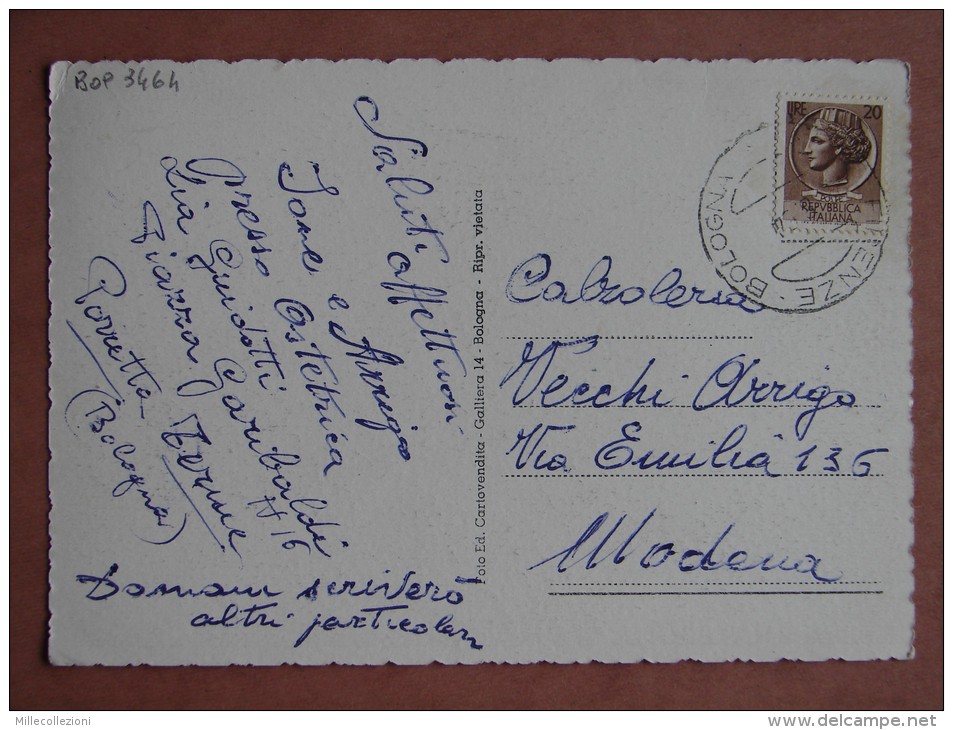 BOP 3464
LIRE 20
POSTE
REPVBBLICA
ITALIANA
BOLOGNA
Saluti affettuosi
Ione e Arrigo
Presso Ostetrica
Lia Guidotti
Piazza Garibaldi
N 16
Porretta Terme
(Bologna)
Domani scriverò
altri particolari
Foto Ed. Cartovendita - Galliera 14 - Bologna - Ripr. vietata
Calzoleria
Vecchi Arrigo
Via Emilia 136
Modena
Millecollezioni
www.delcampe.net